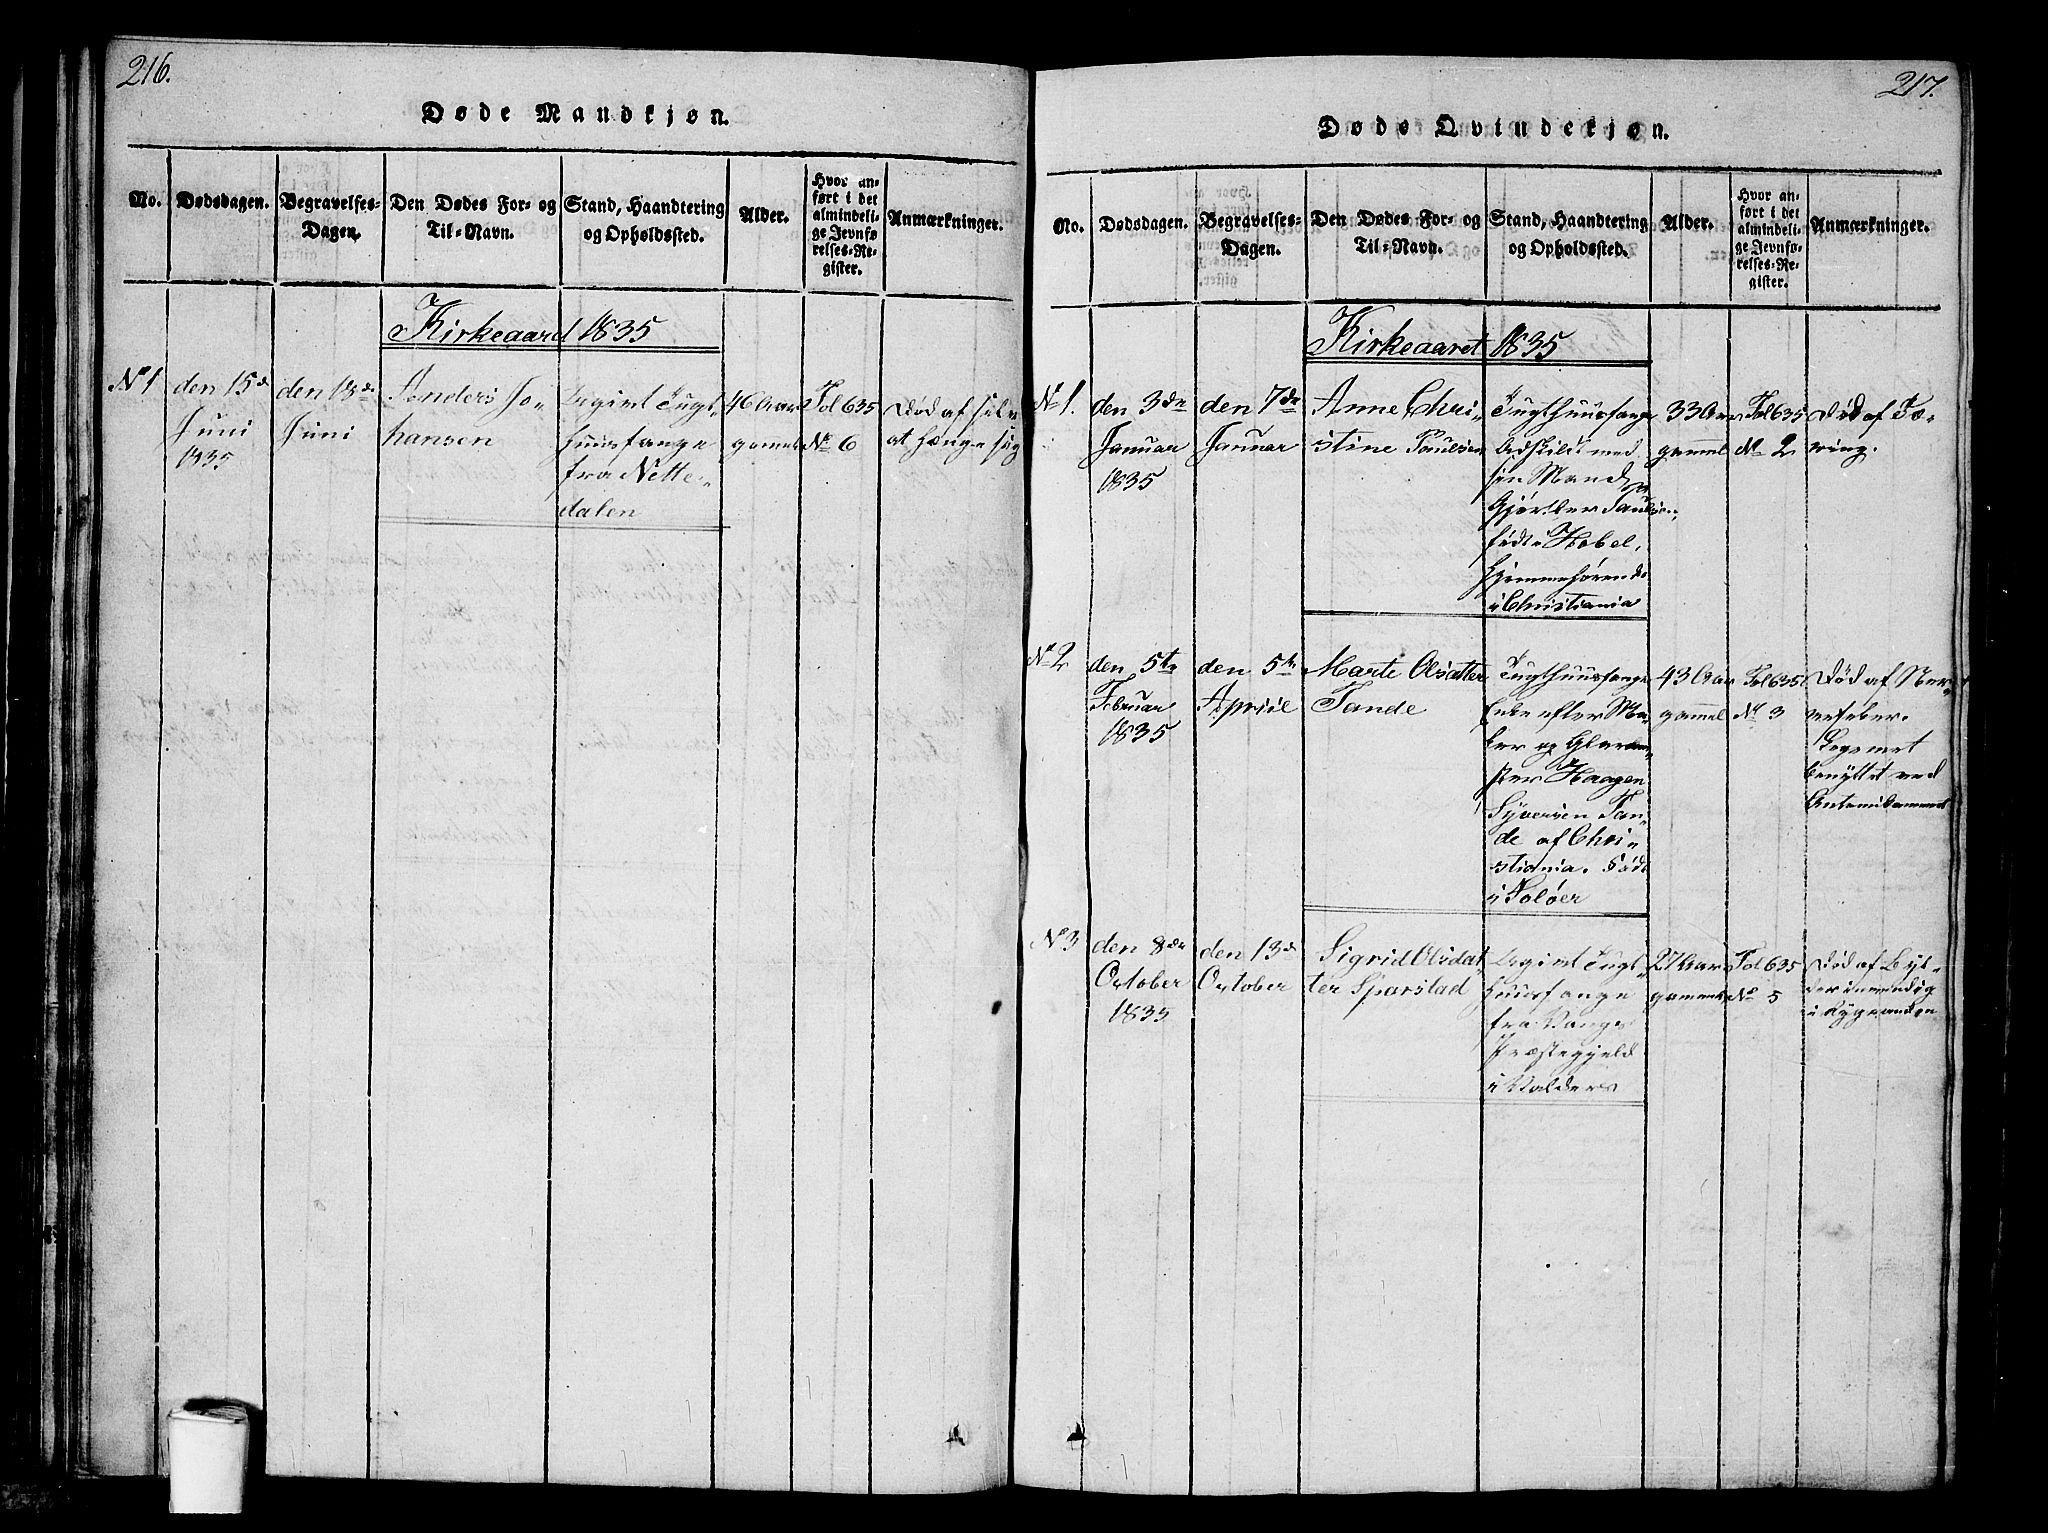 216.
Døde Mandkjøn.
No.
Dødsdagen.
Begravelses-
Dagen.
Den Dødes For- og
Til-Navn.
Stand, Haandtering
og Opholdssted.
Alder.
Hvor an-
ført i det
almindeli-
ge Jevnfø-
relses-Re-
gister.
Anmærkninger.
Kirkeaaret 1835
No 1
den 15de
Juni
1835
den 18de
Juni
Anders Jo-
hansen
Tugt-
huusfange
fra Nitte-
dalen
46 Aar
gammel
Fol 635
No 6
Død af
at hænge sig
217.
Døde Qvindekjøn.
No.
Dødsdagen.
Begravelses-
Dagen.
Den Dødes For- og
Til-Navn.
Stand, Haandtering
og Opholdssted.
Alder.
Hvor an-
ført i det
almindeli-
ge Jevnfø-
relses-Re-
gister.
Anmærkninger.
Kirkeaaret 1835
No 1.
den 3de
Januar
1835
den 7de
Januar
Anne Chri-
stine Paulsen
Tugthuusfange
Adskildt med
sin Mand
Gjørtler Paulsen,
født i Hobel,
hjemmehørende
i Christiania
33 Aar
gammel
Fol 635
No 2
Død af Tæ-
ring.
No 2
den 5te
Februar
1835
den 5te
April
Marte Olsdatter
Tande
Tugthuusfange
Enke efter Ma-
ler og Glarme-
ster Haagen
Syversen Tan-
de af Chri-
stiania. Født
i Soløer
43 Aar
gammel
Fol 635
No 3
Død af Ner-
vefeber.
Legemet
benyttet ved
No 3
den 8de
October
1835
den 13de
October
Sigrid Olsdat-
ter Sparstad
Tugt-
huusfange
fra Vangs
Præstegjeld
i Valders
27 Aar
gammel
Fol 635
No 5
Død af Byl-
der indvendig
i Rygraden